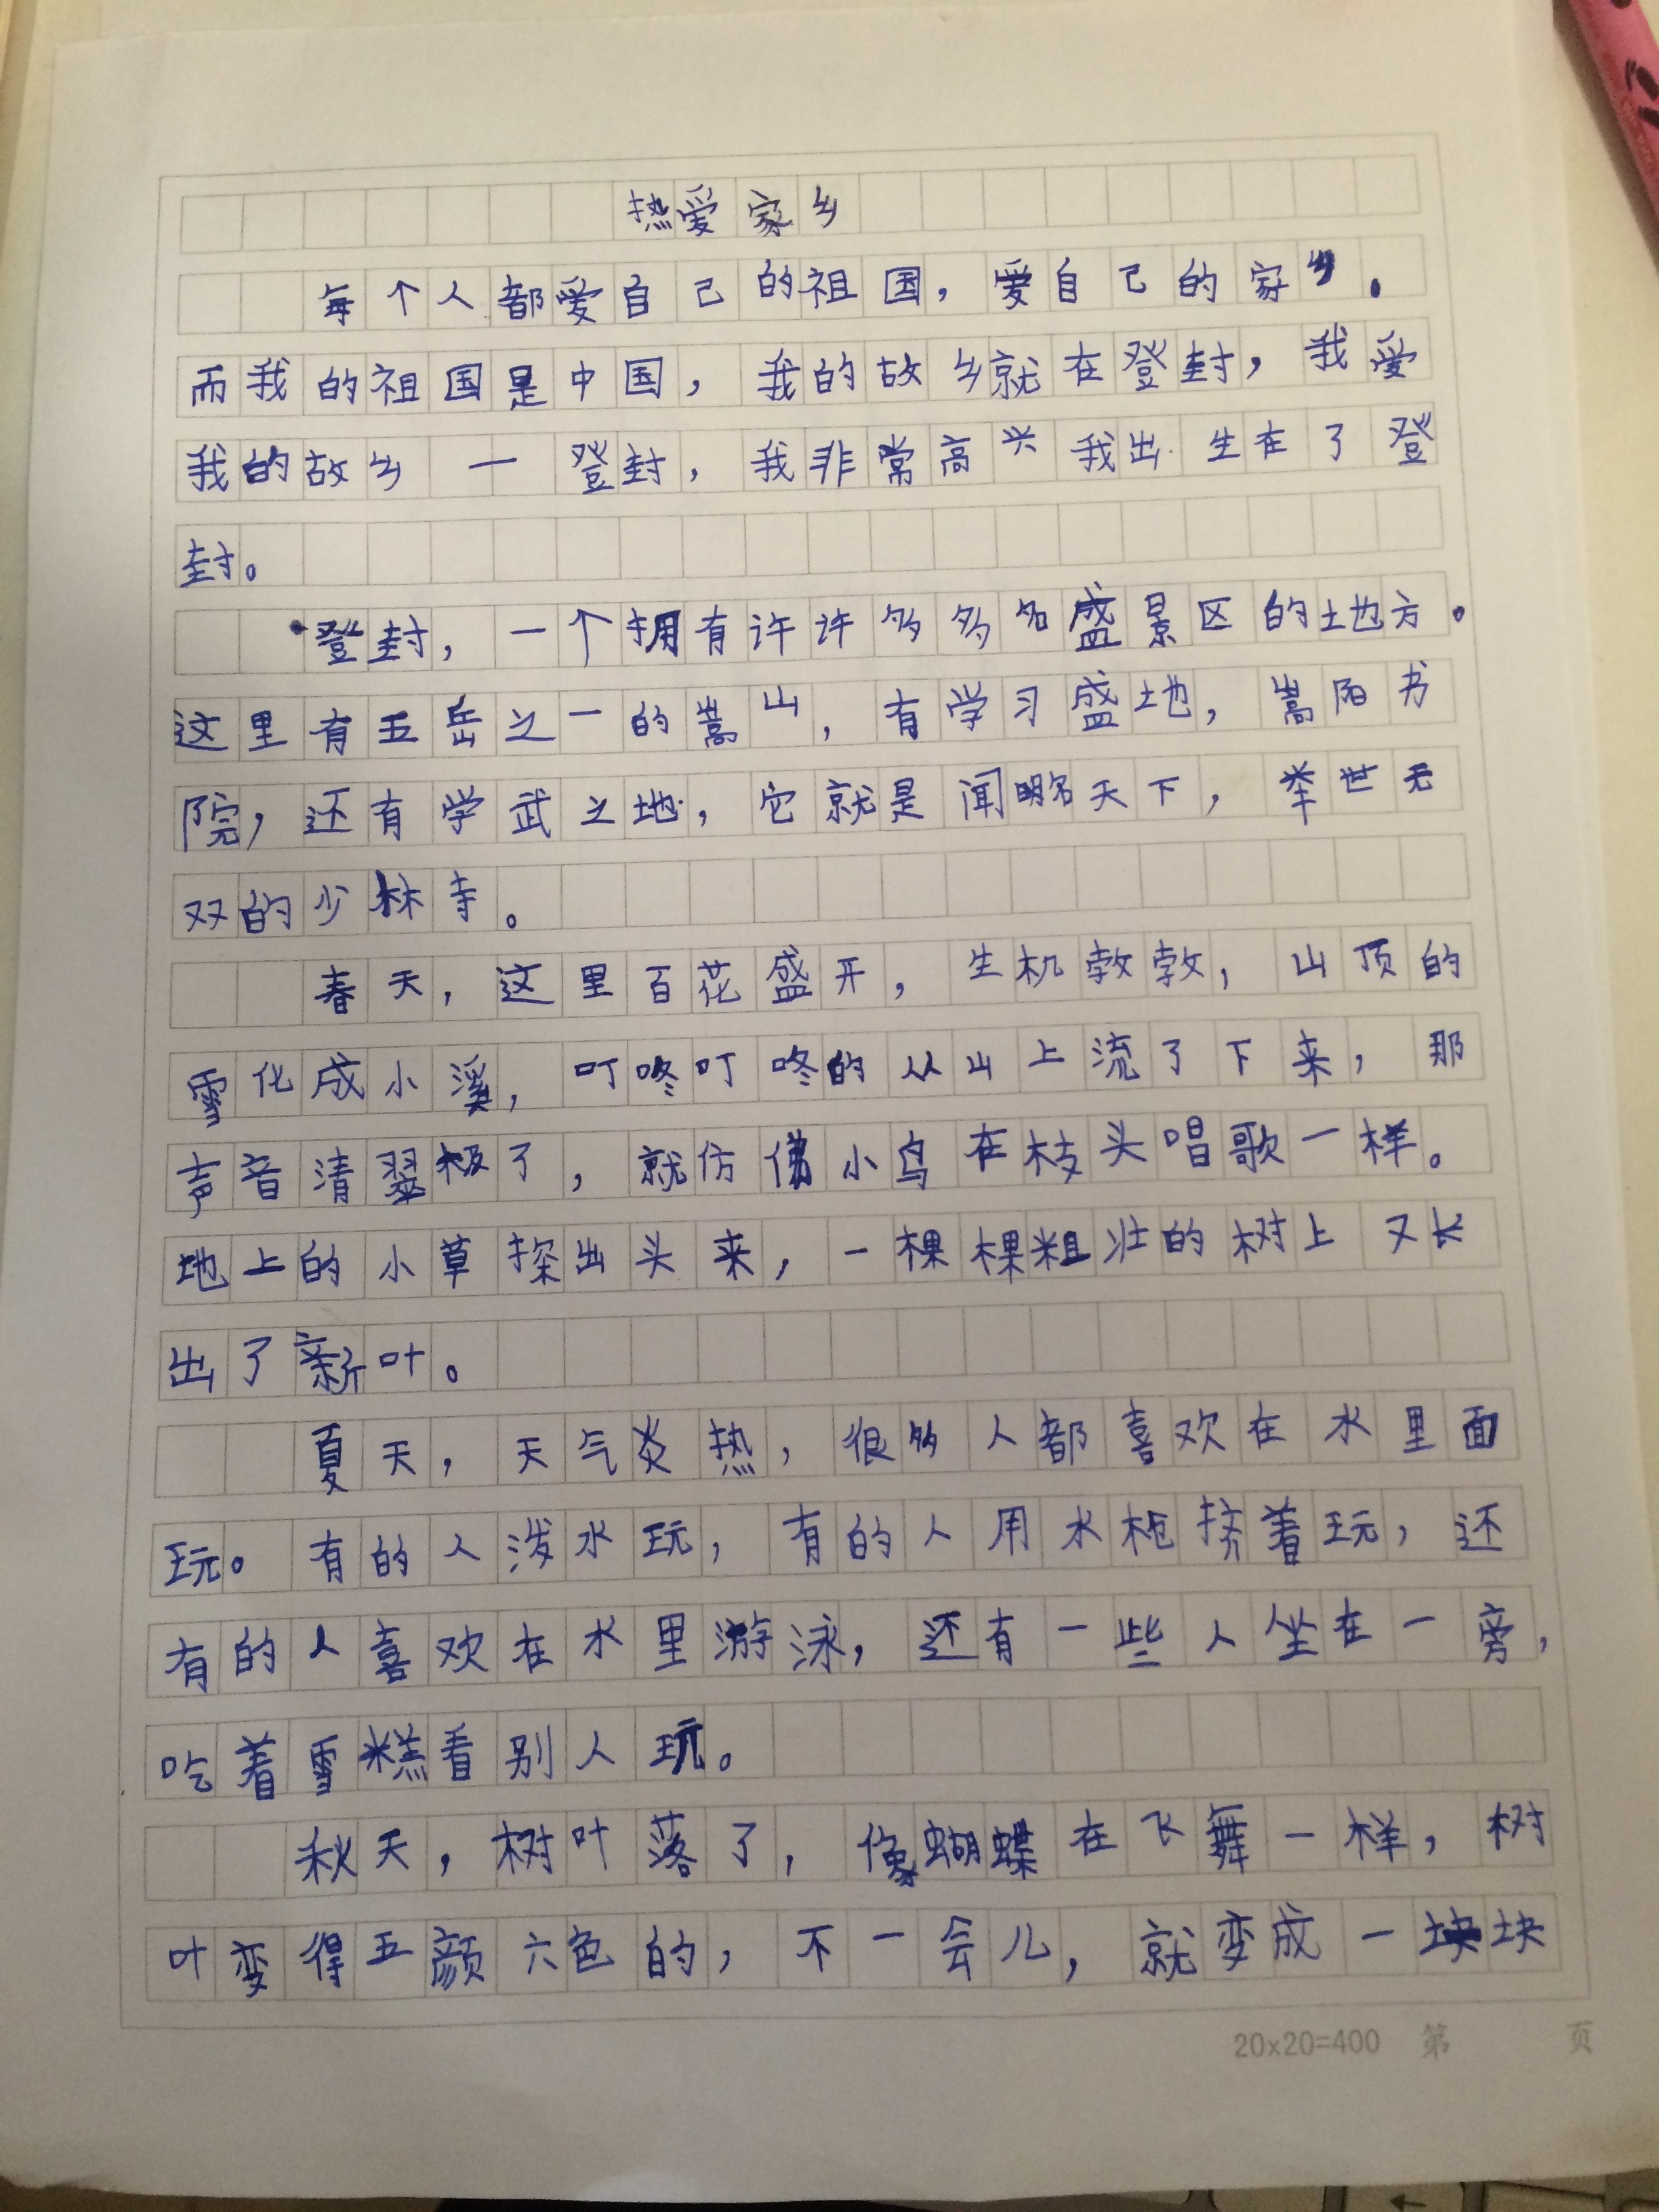 热爱家乡
每个人都爱自己的祖国，爱自己的家乡。
而我的祖国是中国，我的故乡就在登封，我爱
我的故乡一登封，我非常高兴我出生在了登
封。
登封，一个拥有许许多多名盛景区的土地方。
这里有五岳之一的嵩山，有学习盛地，嵩阳书
院，还有学武之地，它就是闻名天下，举世无
双的少林寺。
春天，这里百花盛开，生机勃勃，山顶的
雪化成小溪，叮咚叮咚的从山上流了下来，那
声音清翠极了，就仿佛小鸟在枝头唱歌一样。
地上的小草探出头来，一棵棵粗壮的树上又长
出了新叶。
夏天，天气炎热，很多人都喜欢在水里面
玩。有的人泼水玩，有的人用水枪挤着玩，还
有的人喜欢在水里游泳，还有一些人坐在一旁，
吃着雪糕看别人玩。
秋天，树叶落了，像蝴蝶在飞舞一样，树
叶变得五颜六色的，不一会儿，就变成一块块
20×20=400 第 页